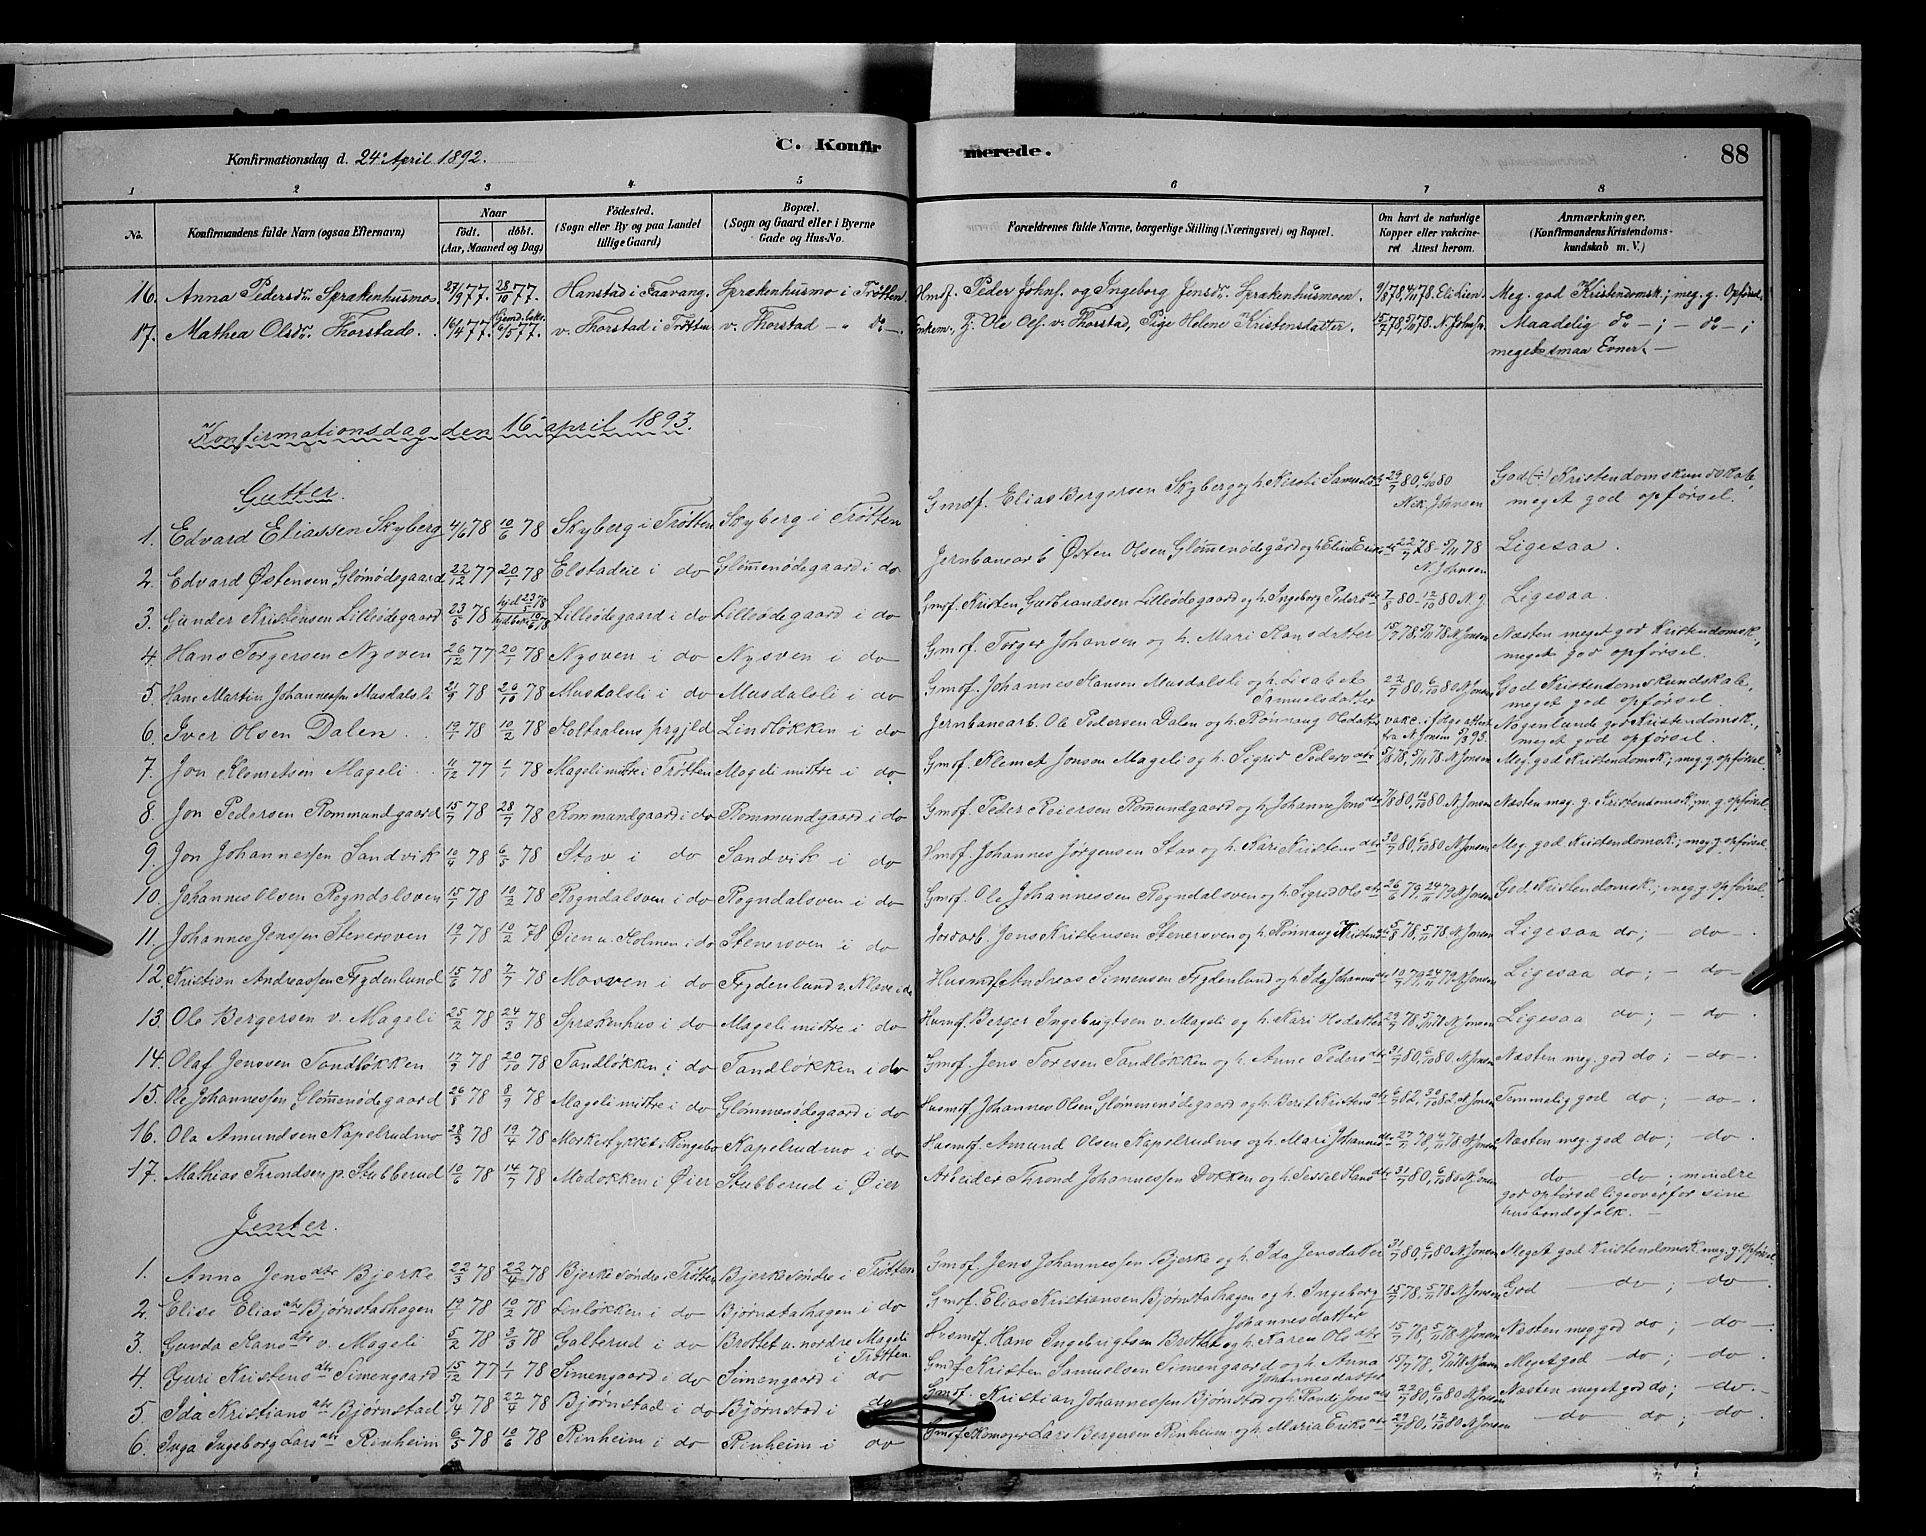 C. Konfirmerede.
88
Konfirmationsdag d. 24de April 1892.
1 2 3 4 5 6 7 8
No. Konfirmandens fulde Navn (ogsaa Efternavn) Naar født. døbt. (Aar, Maaned og Dag) Fødested. (Sogn eller By og paa Landet tillige Gaard) Bopæl. (Sogn og Gaard eller i Byerne Gade og Hus-No. Forældrenes fulde Navne, borgerlige Stilling (Næringsvei) og Bopæl. Om havt de naturlige Kopper eller vakcineret Attest herom. Anmærkninger. (Konfirmandens Kristendomskundskab m. V.)
16. Anna Pedersdr. Sprækenhusmo. 27/9 77. 28/10 77. Hanstad i Faavang. Sprækenhusmo i Trøtten Hmsf. Peder Johnf. og Ingeborg Jensdr. Sprækenhusmoen. 9/8 78, 4/11 78. Eli Lien. Meg. god Kristendomsk.; meg. g. Opførsel.
17. Mathea Olsdr. Thorstad. 16/4 77. 6/5 77. v. Thorstad i Trøtten v. Thorstad - " do -. Enkem. Tj. Ole Olf. v. Thorstad, Pige Helene Kristensdatter. 15/7 78, 5/11 78. N. Johnsn. Maadelig do - ; - do - ;
meget smaa Evner. -
Konfirmationsdag den 16de april 1893.
Gutter.
1. Edvard Eliassen Skyberg 4/6 78 10/6 78 Skyberg i Trøtten Skyberg i Trøtten Gmdf. Elias Bergersen Skyberg og h. Kirsti Samuelsdtr 29/7 80, 6/10 80 Nek. Johnsen God (÷) Kristendomskundskab, meget god opførsel.
2. Edvard Østensen Glømødegaard 22/12 77 20/1 78 Elstadeie i do Glømmenødegaard i do Jernbanearb Østen Olsen Glømmenødegård og h. Eline 22/7 78 - 5/11 78 N. Johnsen Ligesaa.
3. Gunder Kristensen Lilleødegaard 23/5 78 hjd 23/5 78 10/6 78 Lilleødegaard i do Lilleødegaard i do Gmdf. Kristen Gudbrandsen Lilleødegaard og h. Ingeborg Pedersdtr 7/8 80 - 12/10 80 N. J. Ligesaa.
4. Hans Torgersen Nysven 26/12 77 20/1 78 Nysven i do Nysven i do Gmdf. Torger Johansen og h. Mari Hansdatter 15/7 78, 5/11 78 N. Jonsen Næsten meget god Kristendomsk., meget god opførsel.
5. Hans Martin Johannessen Musdalsli 21/9 78 20/10 78 Musdalsli i do Musdalsli i do Gmdf. Johannes Hansen Musdalsli og h. Lisabet Samuelsdatter 22/7 80, 6/10 80 N. Jonsen God Kristendomskundskab, meget god opførsel.
6. Iver Olsen Dalen. 19/1 78 10/2 78 Holtaalens prgjld Lindløkken i do Jernbanearb. Ole Pedersen Dalen og h. Rønnaug Olsdatter vakc. ifølge attest fra N. Jonsen 5/3 93. Nogenlunde god Kristendomsk., meget god opførsel.
7. Jon Klemetsen Mageli. 11/12 77 1/1 78 Mageli mistre i Trøtten Mageli mistre i do Gmdf. Klemet Jonsen Mageli og h. Sigrid Pedersdtr 5/8 78, 5/11 78 N. Jonsen Meg. god Kristendomsk.; meg. g. opførsel.
8. Jon Pedersen Rommundgaard 15/7 78 28/7 78 Rommundgaard i do Rommundgaard i do Gmdf. Peder Reiersen Romundgaard og h. Johanne Jonsdtr 7/8 80, 12/10 80 N. Jonsen Næsten meg. g. Kristendomsk., m. g. opførsel.
9. Jon Johannessen Sandvik 10/4 78 6/5 78 Stav i do Sandvik i do Hmdf. Johannes Jørgensen Stav og h. Kari Kristensdtr 30/7 80, 6/10 80 N. Jonsen Meg. god Kristendomsk.; meg. g. opførsel.
10. Johannes Olsen Rogndalsven 15/1 78 10/2 78 Rogndalsven i do Rogndalsven i do Gmdf. Ole Johannessen Rogndalsven og h. Sigrid Olsdtr 26/6 79, 24/11 79 N. Jonsen God Kristendomsk.; meg. g. opførsel.
11. Johannes Jenssen Stenersven 19/1 78 10/2 78 Øien u. Holmen i do Stenersven i do Jordarb. Jens Kristensen Stenersven og h. Rønnaug Kristensdtr 5/8 78, 5/11 78 N. Jonsen Ligesaa do; - do -.
12. Kristian Andreassen Frydenlund 15/6 78 7/7 78 Mosven i do Frydenlund v. Kleve i do Husmdf Andreas Simensen Frydenlund og h. Ida Johannesdtr 10/7 79, 24/11 79 N. Jonsen Ligesaa do; - do -
13. Ole Bergersen v. Mageli 25/2 78 24/3 78 Sprækenhus i do Mageli mistre i do Husmf. Berger Ingebrigtsen v. Mageli og h. Kari Olsdatter 29/7 78, 5/11 78 N. Jonsen Ligesaa do; - do -.
14. Olaf Jenssen Tandløkken 17/9 78 20/10 78 Tandløkken i do Tandløkken i do Gmdf. Jens Toresen Tandløkken og h. Anne Pedersdtr 31/7 80, 6/10 80. N. Jonsen Næsten meg. god do; - do -.
15. Ole Johannessen Glømmenødegaard 26/8 78 8/9 78 Mageli mistre i do Glømmenødegaard i do Husmdf. Johannes Olsen Glømmenødegaard og h. Berit Kristensdtr 6/7 82, 30/10 82 N. Jonsen Temmelig god do; - do -.
16. Ola Amundsen Kapelrudmo 28/3 78 19/4 78 Mørkestykket i Ringebo Kapelrudmo i do Husmdf. Amund Olsen Kapelrudmo og h. Mari Johannesdtr 27/7 78, 4/11 78 N. Jonsen Næsten meg. god do; - do.
17. Mathias Throndsen p. Stubberud 10/6 78 14/7 78 Modokken i Øier Stubberud i Øier Arbeider Thrond Johannessen Dokken og h. Sessel Hansdtr 31/7 80, 6/10 80 N. Jonsen do - do; mindre god opførsel ligeoverfor sine husbondsfolk. -
Jenter.
1. Anna Jensdtr Bjerke 22/3 78 22/4 78 Bjerke søndre i Trøtten Bjerke søndre i Trøtten Gmdf. Jens Johannessen Bjerke og h. Ida Jensdatter 31/7 80, 6/10 80 N. Jonsen Meget god Kristendomsk. meg. g. opførsel.
2. Elise Eliasdtr Bjørnstahagen 19/1 78 10/2 78 Linløkken i do Bjørnstahagen i do Gmdf. Elias Kristiansen Bjørnstahagen og h. Ingeborg Johannesdatter 15/7 78, 5/11 78 N. Jonsen God do; - do -.
3. Gunda Hansdtr v. Mageli 5/2 78 3/3 78 Galterud i do Brottet u. nordre Mageli i Trøtten. Husmdf. Hans Ingebrigtsen Brottet og h. Karen Olsdtr 15/7 78, 5/11 78 N. Jonsen Næsten meg god do; - do -
4. Guri Kristensdtr Simengaard 15/12 77 1/1 78 Simengaard i do Simengaard i do Gmdf. Kristen Samuelsen Simengaard og h. Anna Johannesdatter 15/7 78, 5/11 78 N. Jonsen Meget god do; - do.
5. Ida Kristiansdtr Bjørnstad 5/4 78 22/4 78 Bjørnstad i do Bjørnstad i do Gmdf. Kristian Johannessen Bjørnstad og h. Randi Jensdtr 22/7 80, 6/10 80 N. Jonsen Næsten meget god do; - do -.
6. Inga Ingeborg Larsdtr Rinheim 6/5 78 10/6 78 Rinheim i do Rinheim i do Gmdf. Skomager Lars Bergersen Rinheim og h. Maria Eriksdtr 29/7 80, 12/10 80 N. Jonsen - do do; - do.